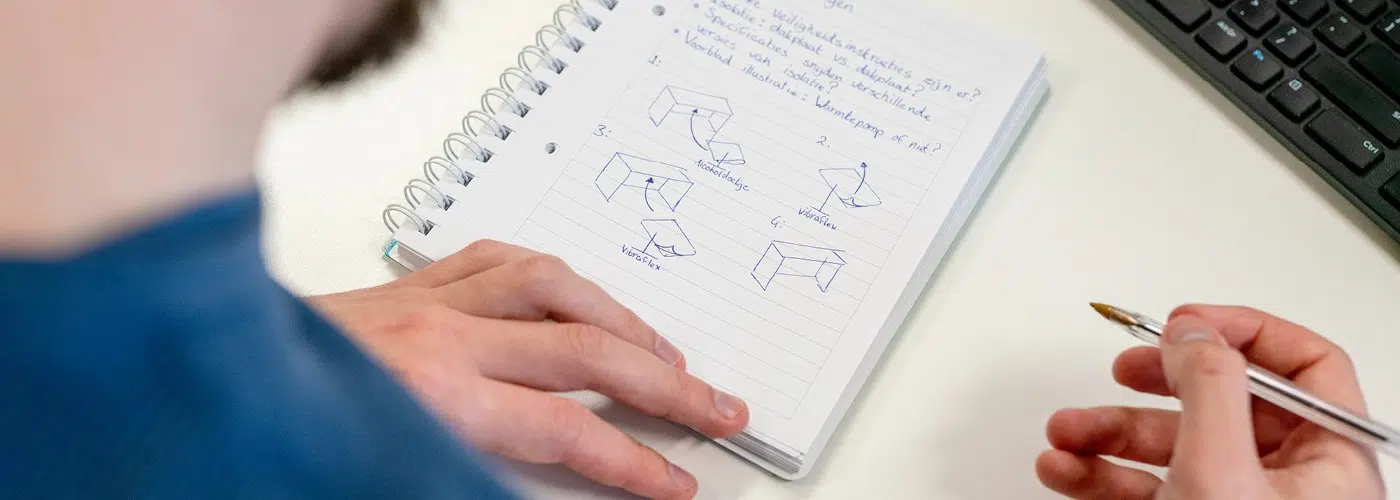 Veiligheidsinstructies zijn er?
Isolatie: dakplaat vs. dakplaat?
• Specificaties snijden verschillende
versies van isolatie?
• Voorblad illustratie: Warmtepomp of niet?
1:
Alcoholdoekje
2.
Vibraflex
3:
Vibraflex
4:
Menu
Ctrl